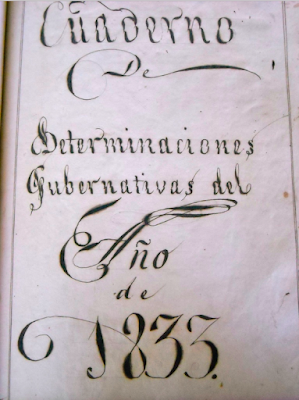 Cuaderno
De
Determinaciones
Gubernativas del
Año
de
1833.